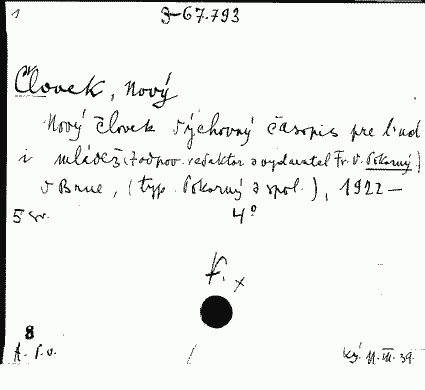 1 9-67.793
Človek, nový
Nový človek výchovný časopis pre ľud
i mládež (zodpov. redaktor a vydavatel Fr. V. Pokorný)
v Brne, (typ. Pokorný a spol.), 1922—
5 sv. 4°
F. x
8
A. P. v. / 11. III. 39.